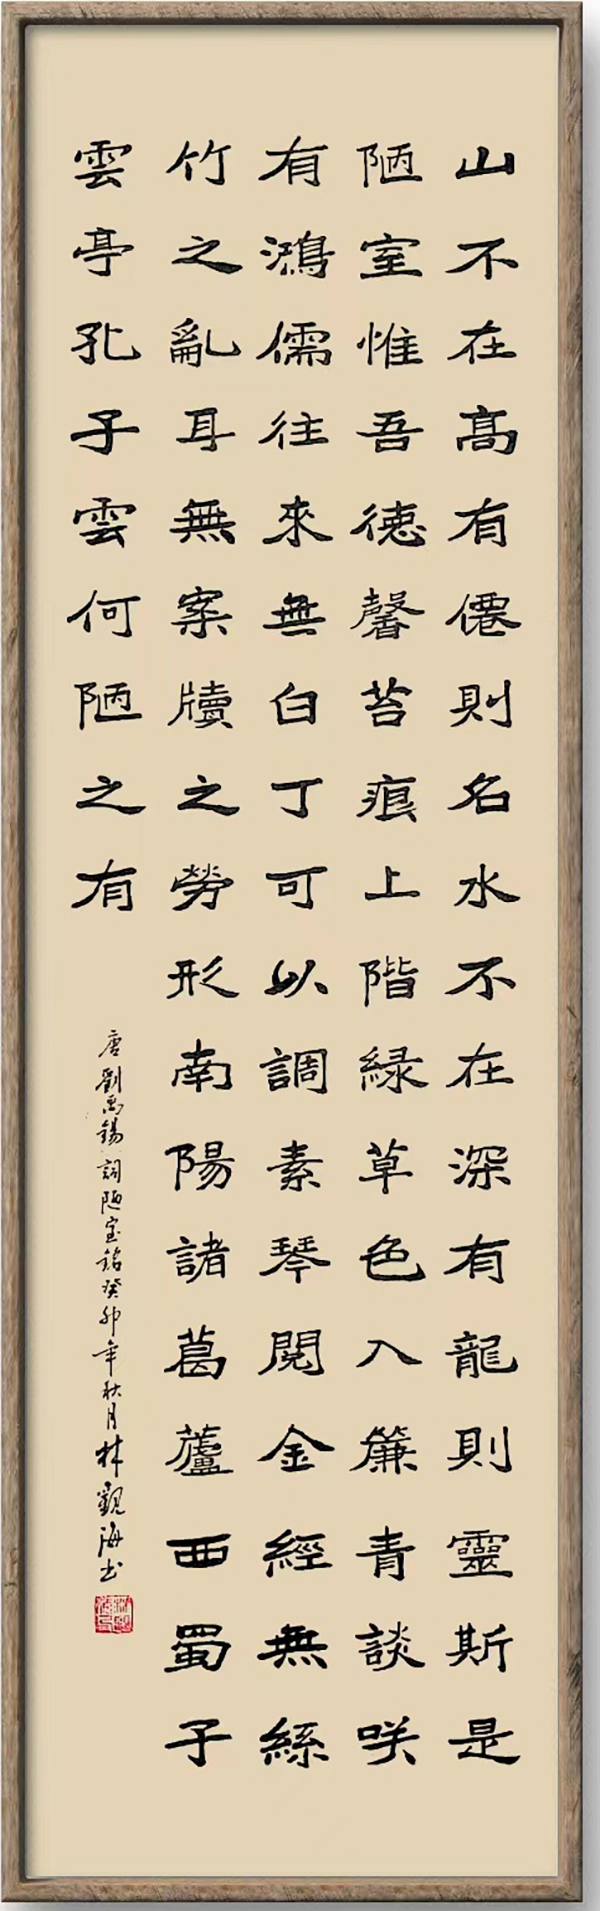 山不在高有僊則名水不在深有龍則靈斯是
陋室惟吾德馨苔痕上階緑草色入簾青談咲
有鴻儒往來無白丁可以調素琴閱金經無絲
竹之亂耳無案牘之勞形南陽諸葛蘆西蜀子
雲亭孔子雲何陋之有
唐劉禹錫詞陋室銘癸卯年秋月林觀海书